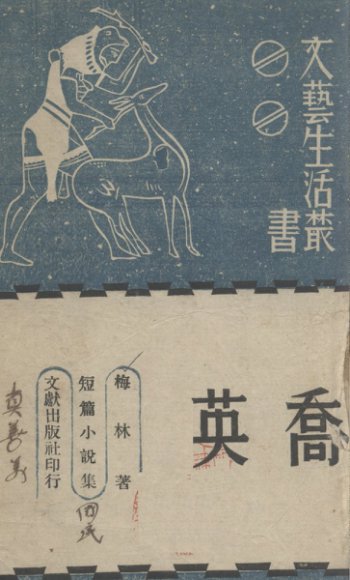 文藝生活叢書
喬英
梅林著
短篇小說集
文獻出版社印行
真善美